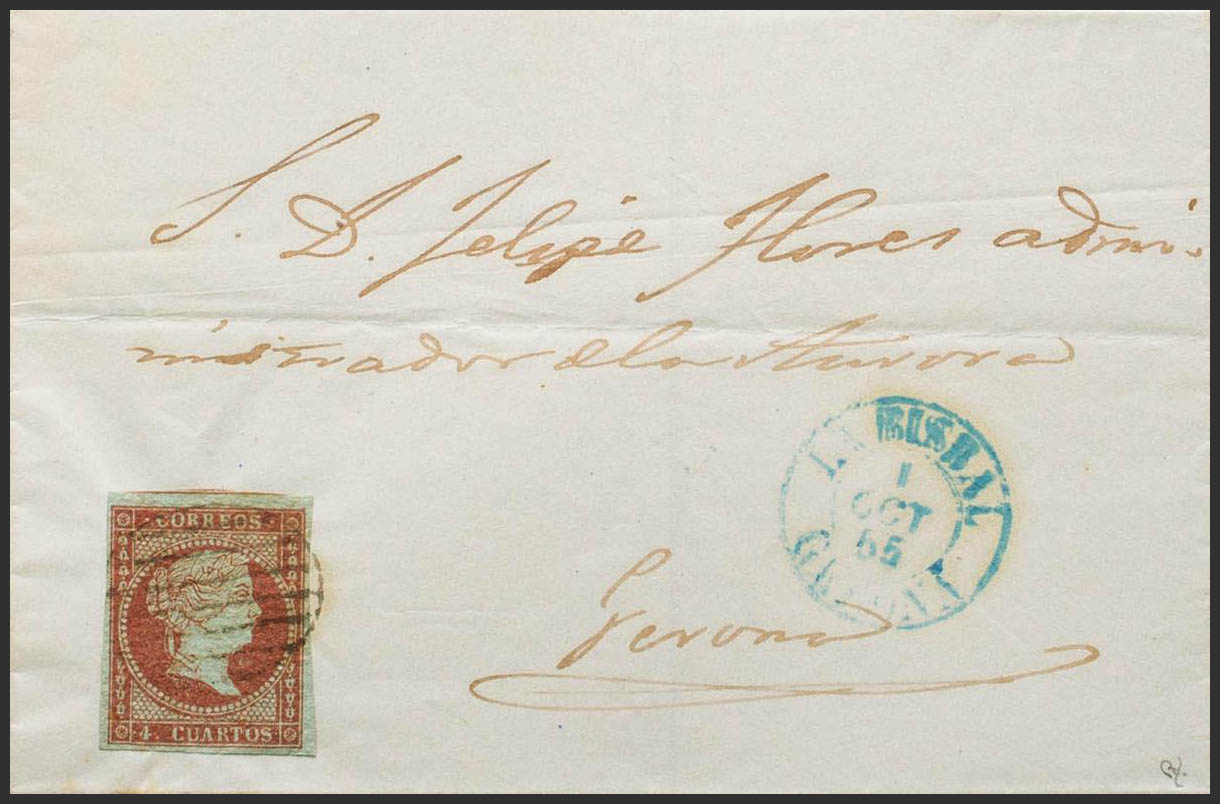 S. D. Felipe Flores admi-
nistrador de la Aurora
LA BISBAL
1
OCT
55
GERONA
CORREOS
4. CUARTOS
Gerona